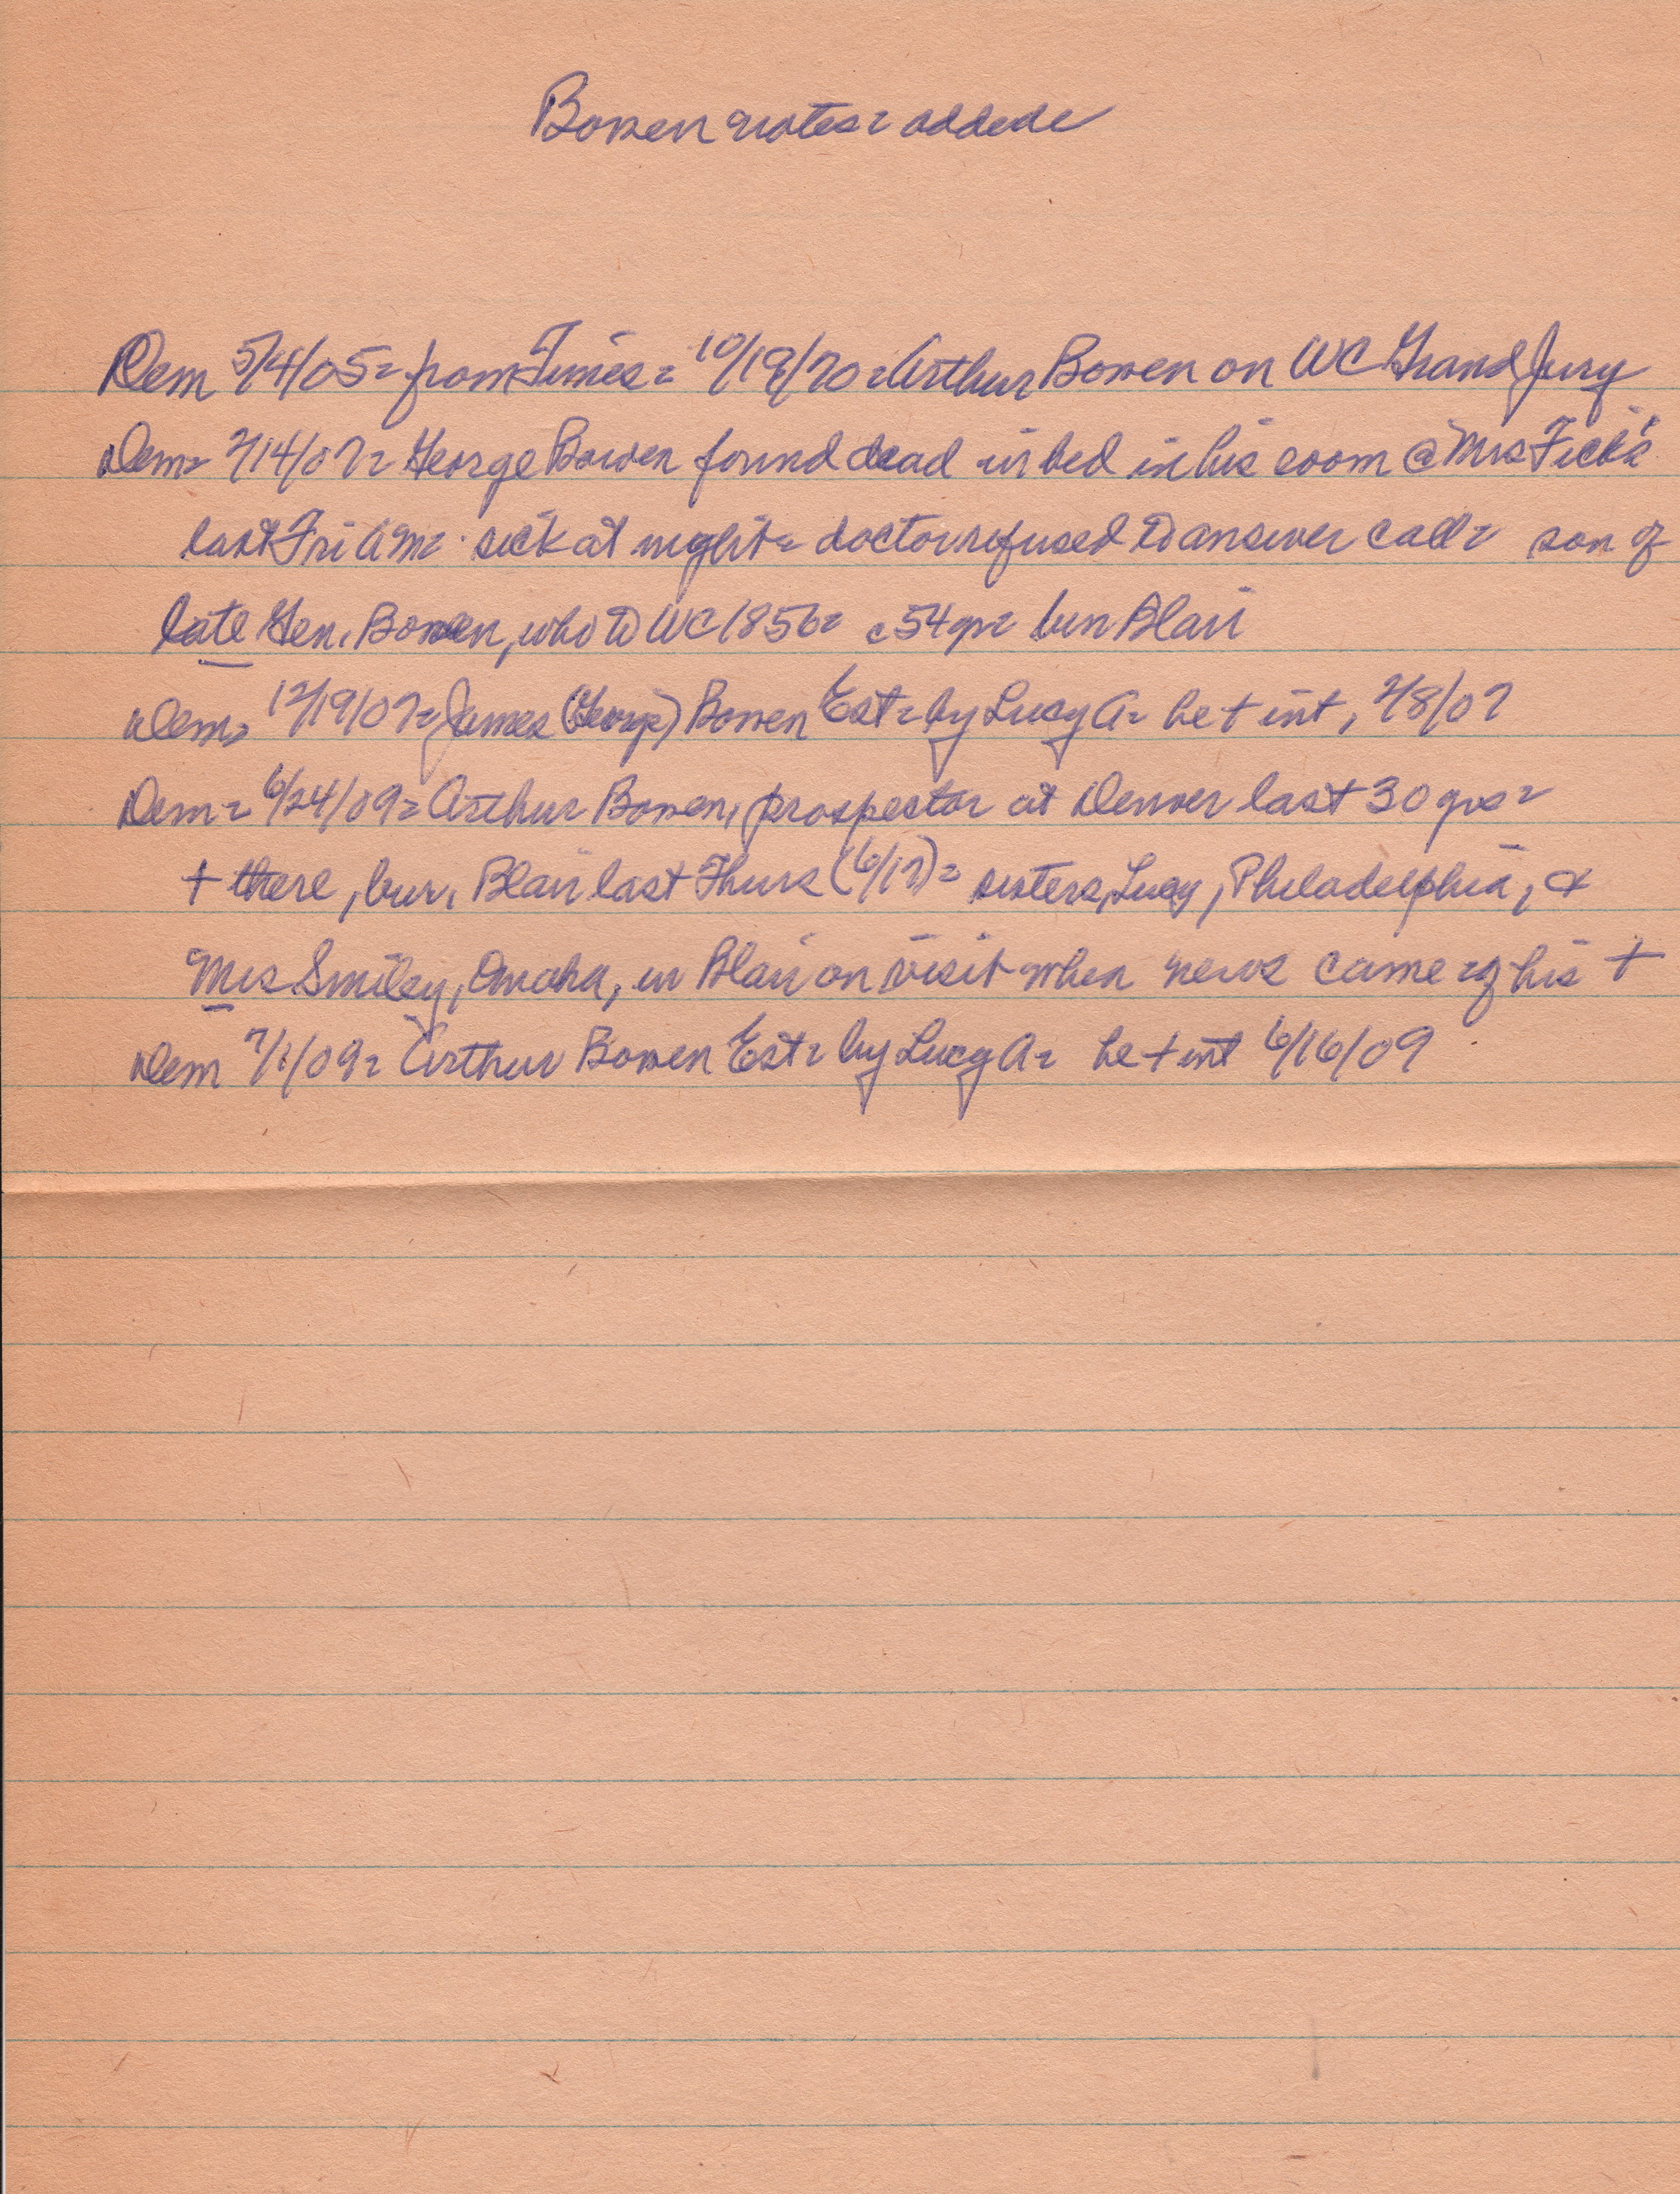 Bowen notes = added =
Dem 5/4/05 = from Times = 10/19/70 = Arthur Bowen on WC Grand Jury
Dem = 2/14/07 = George Bowen found dead in bed in his room @ Mrs Fick's
last Fri AM = sick at night = doctor refused to answer call = son of
late Gen. Bowen, who to WC 1856 = c 54 yrs = bur Blair
Dem = 12/19/07 = James (George) Bowen Est = by Lucy A = he + int, 2/8/07
Dem = 6/24/09 = Arthur Bowen, prospector at Denver last 30 yrs =
+ there, bur. Blair last Thurs (6/17) = sisters, Lucy, Philadelphia, &
Mrs Smiley, Omaha, in Blair on visit when news came of his +
Dem 7/1/09 = Arthur Bowen Est = by Lucy A = he + int 6/16/09